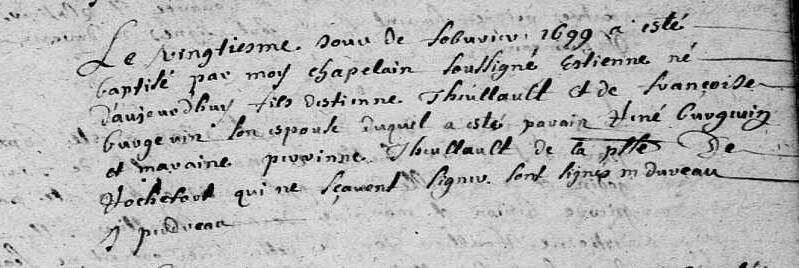 Le vingtiesme Jour de febvrier 1699 a esté
baptisé par moy chapelain soussigné Estienne né
d'aujourdhuy fils destienne Theullault et de françoise
burgevin son espouse duquel a esté parain René burgevin
et maraine perrinne Theullault de la psse De
Rochefort qui ne sçavent signer. sont signes m duveau